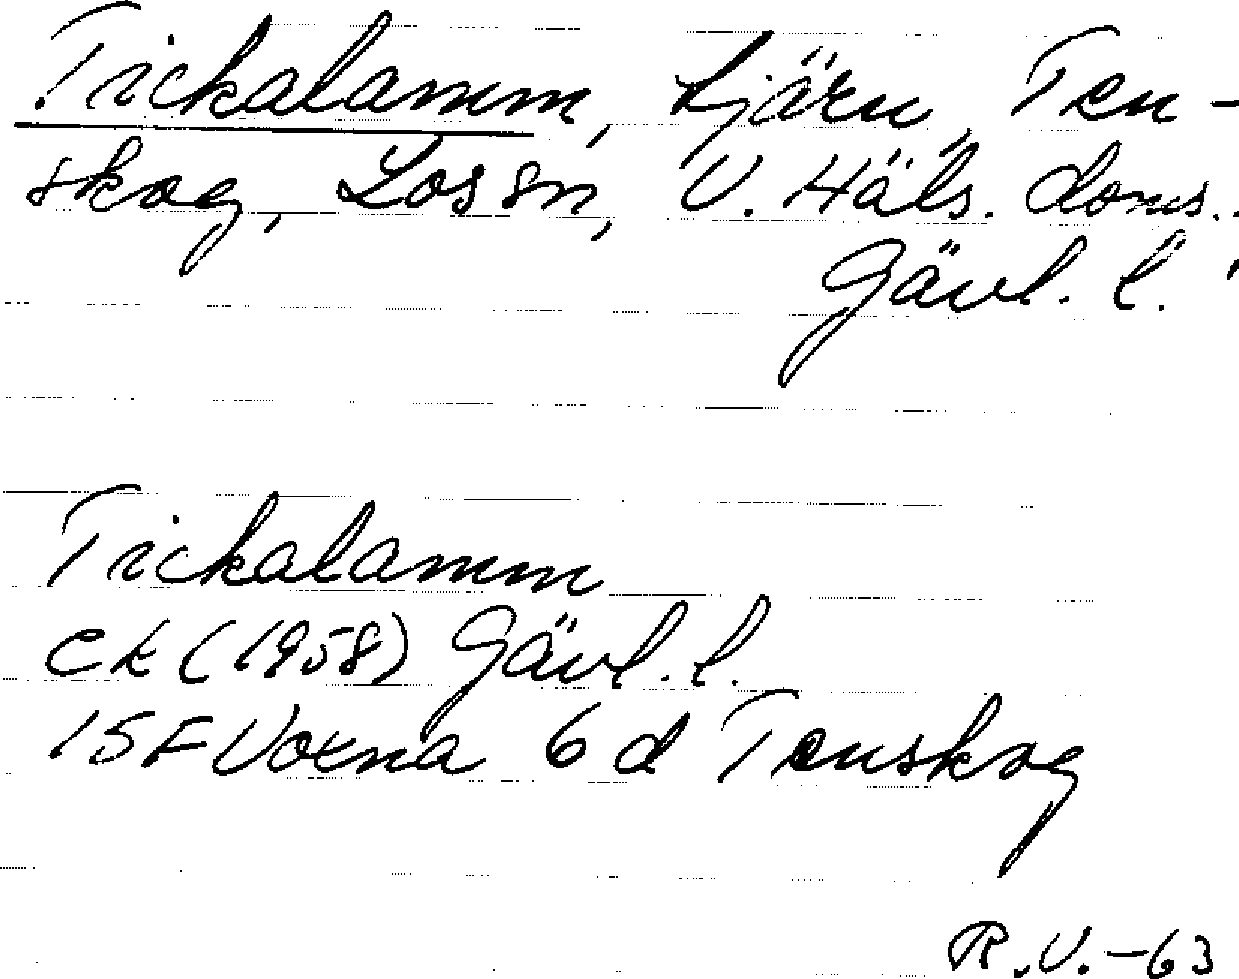 Trickalamm, tjärn, Ten-
skog, Los sn, V. Häls. doms.,
Gävl. l.
Trickalamm
ek (1958) Gävl. l.
15F Voxna 6 d Tenskog
R.V. -63